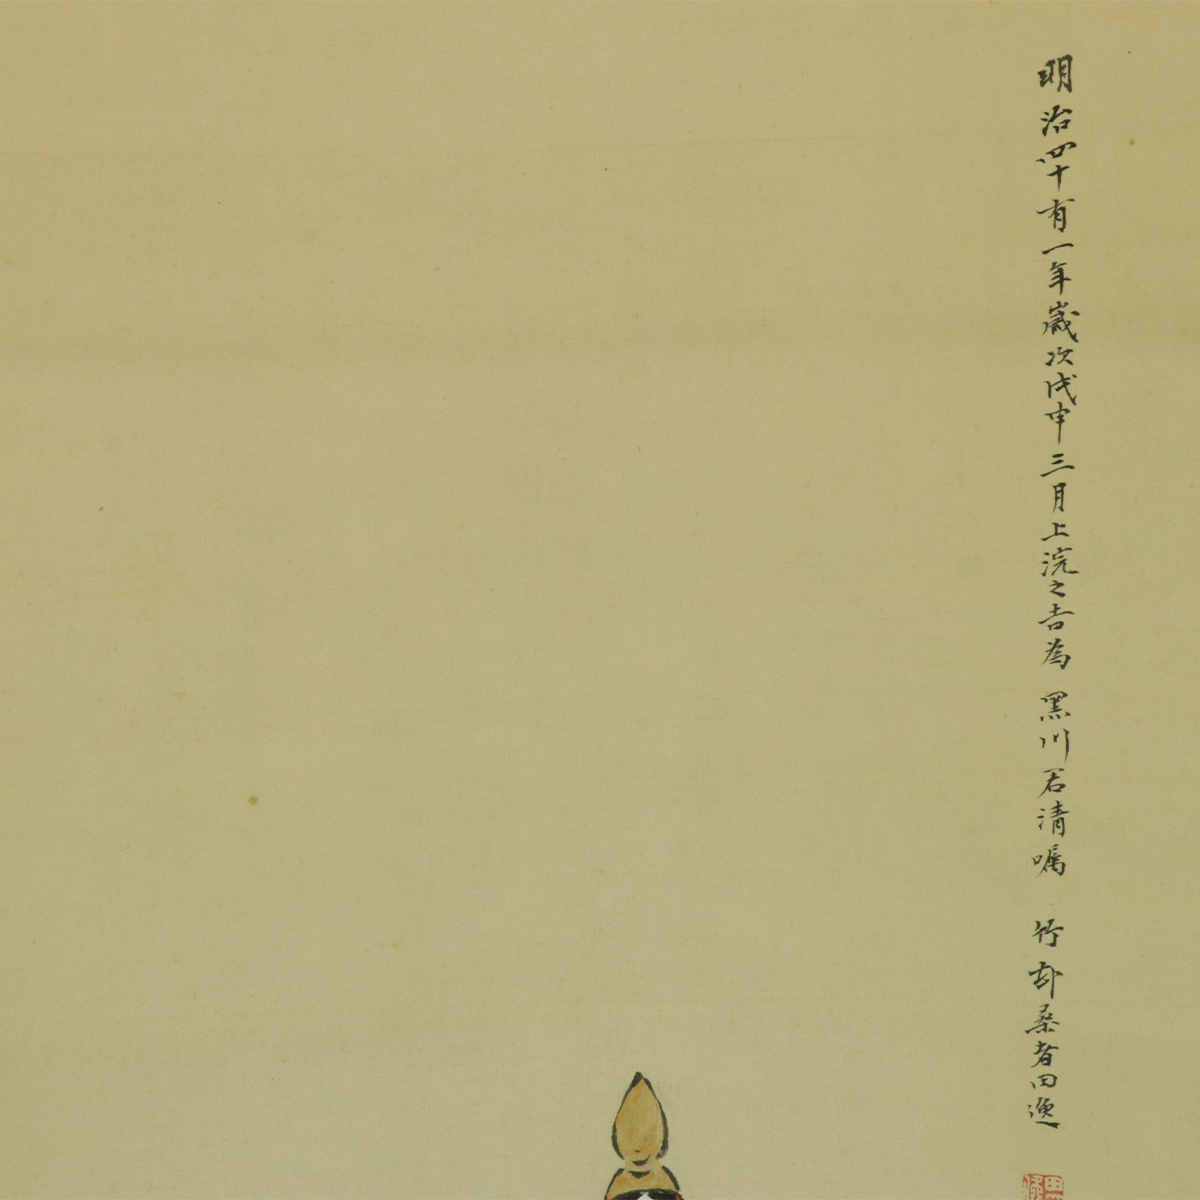 明治四十有一年歳次戊申三月上浣之吉為 黒川君清嘱 竹邨桑者田逸